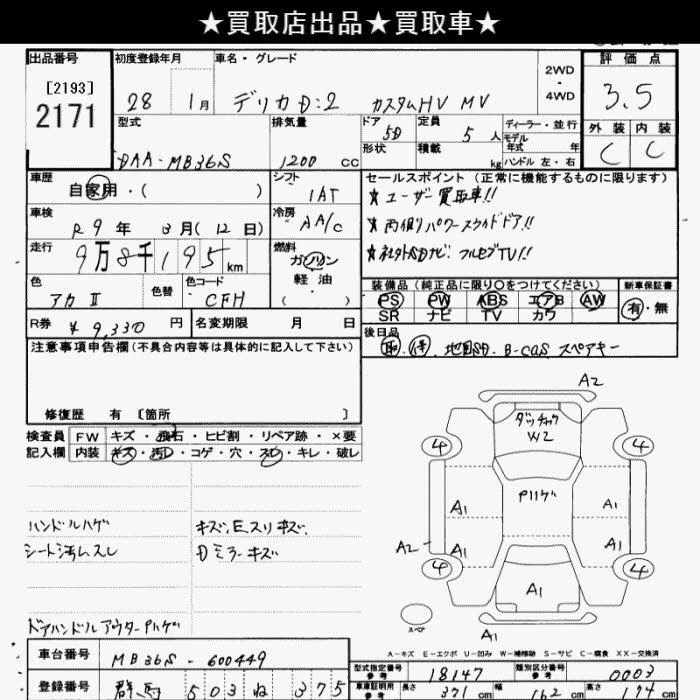 ★買取店出品★買取車★
出品番号 初度登録年月 車名・グレード 2WD・4WD 評価点
[2193]
2171
28 1月 デリカD:2 カスタムHV MV 3.5
型式 排気量 ドア 定員 ディーラー・並行 外装 内装
5D 5人 モデル年式 年
DAA-MB36S 1200cc 形状 積載 kg ハンドル 左・右 C C
車歴 シフト セールスポイント(正常に機能するものに限ります)
自家用・( ) 1AT ★ユーザー買取車!!
車検 R9年3月(12日) 冷房 AA/C ★両側パワースライドドア!!
走行 9万8千195km 燃料 ガソリン 軽油 ( ) ★社外SDナビ フルセグTV!!
色 色替 色コード 装備品(純正品に限り○をつけてください) 新車保証書
アカⅡ CFH PS PW ABS エアB AW 有・無
SR ナビ TV カワ
R券 ¥9,330円 名変期限 月 日 後日品
注意事項申告欄(不具合内容等は具体的に記入して下さい) 取・保 地図SD B-CAS スペアキー
修復歴 有 〔箇所 〕
検査員 FW キズ・飛石・ヒビ割・リペア跡・×要
記入欄 内装 キズ・汚レ・コゲ・穴・スレ・キレ・破レ
A2
W2
4 4
Pハゲ
A1 A1
A2 A1 A1
4 4
A1
スペア A1
ハンドルハゲ キズ、Eスリキズ、
シート汚レスレ Dミラーキズ
ドアハンドルアウターPハゲ
A-キズ E-エクボ U-凹み W-補修跡 S-サビ C-腐食 XX-交換済
車台番号 MB36S-600449
型式指定番号 参考 18147 類別区分番号 参考 0003
登録番号 群馬 503 ね 375
車庫証明用 参考 長さ 371cm 幅 162cm 高さ 174cm